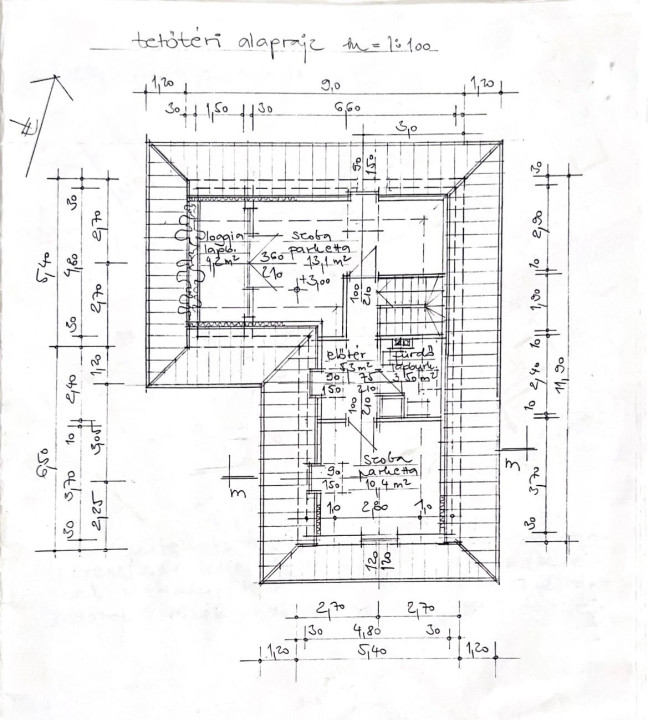 tetőtéri alaprajz m=1:100
1,20 9,0 1,20
30 1,50 30 6,60
3,0
É
90
150
30 2,70
5,40 4,80
2,70
30
1,20
2,40
10 3,05
6,50
3,70
2,25
30
loggia
lapb.
4,2 m²
szoba
parketta
13,1 m²
360
210
+3,00
100
210
előtér
5,3 m²
90
150
75
210
fürdő
lapburk.
3,50 m²
100
210
szoba
parketta
10,4 m²
90
150
1,0 2,80 1,0
120
120
m
m
30
2,90
10
1,90
10
2,40
11,90
10
3,70
30
2,70 2,70
30 4,80 30
1,20 5,40 1,20